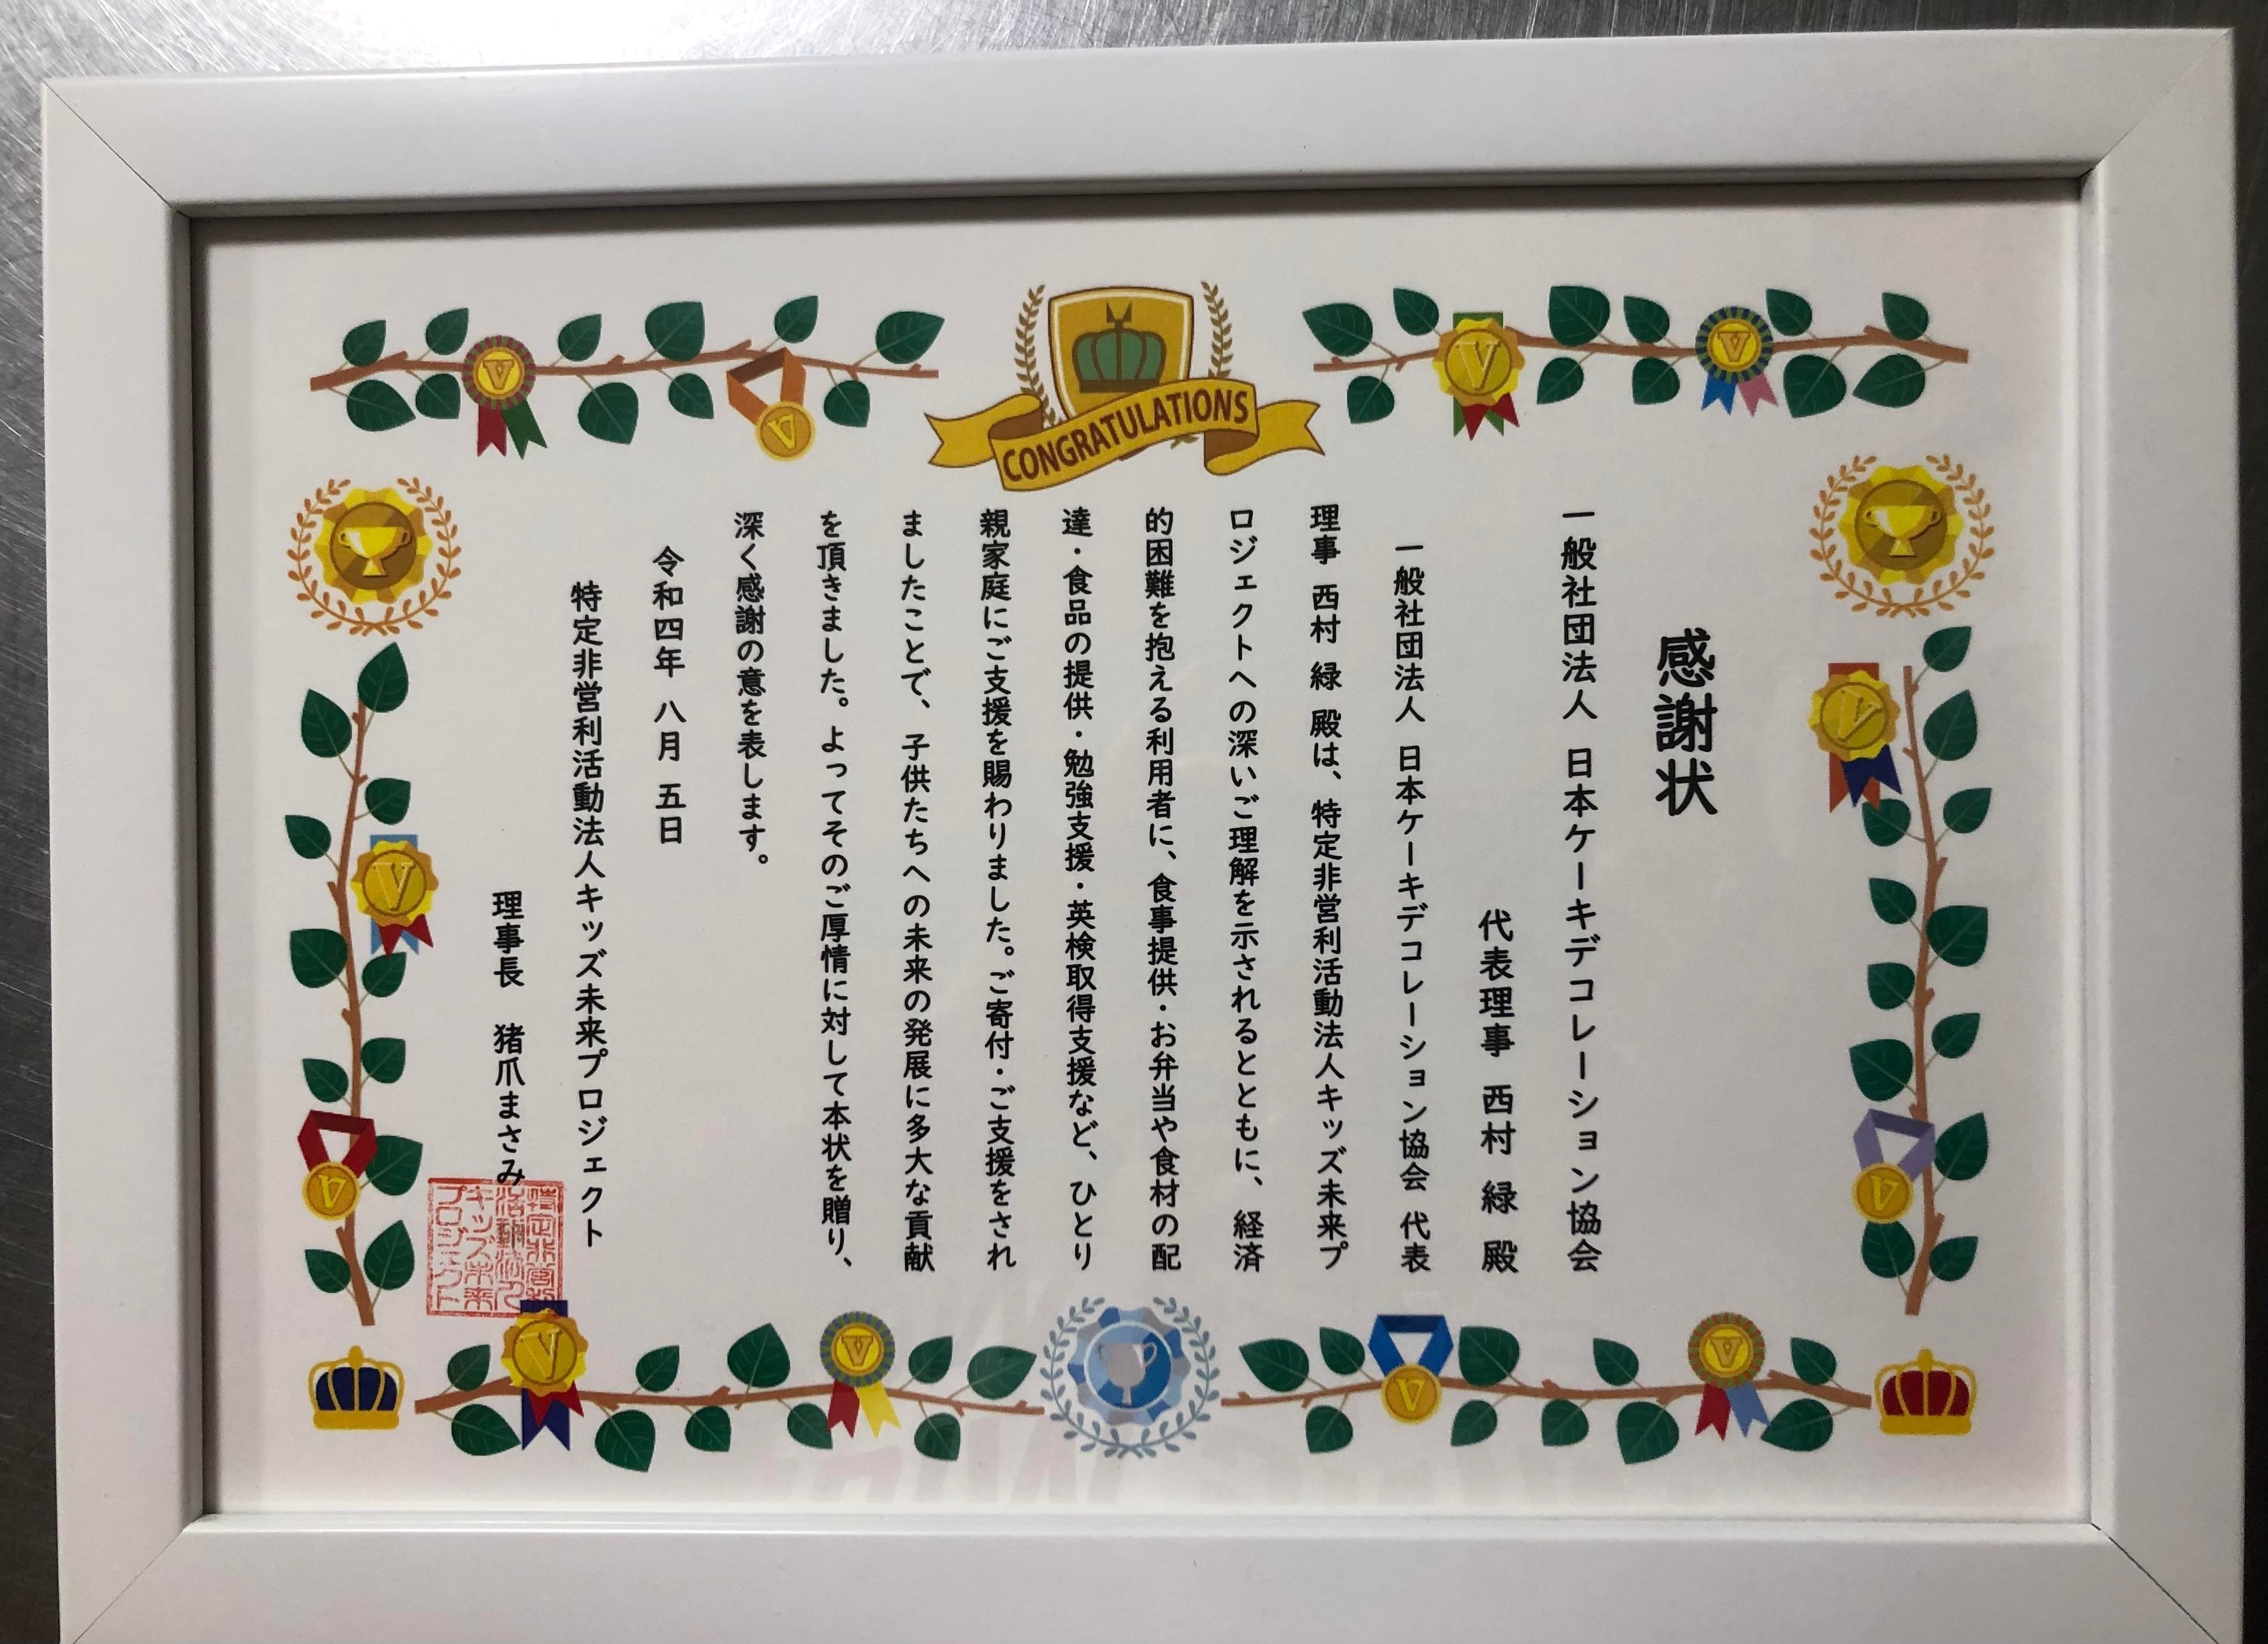 CONGRATULATIONS
感謝状
一般社団法人 日本ケーキデコレーション協会
代表理事 西村 緑 殿
一般社団法人 日本ケーキデコレーション協会 代表
理事 西村 緑 殿は、特定非営利活動法人キッズ未来プ
ロジェクトへの深いご理解を示されるとともに、経済
的困難を抱える利用者に、食事提供・お弁当や食材の配
達・食品の提供・勉強支援・英検取得支援など、ひとり
親家庭にご支援を賜わりました。ご寄付・ご支援をされ
ましたことで、子供たちへの未来の発展に多大な貢献
を頂きました。よってそのご厚情に対して本状を贈り、
深く感謝の意を表します。
令和四年 八月 五日
特定非営利活動法人キッズ未来プロジェクト
理事長 猪爪まさみ
特定非営利
活動法人
キッズ未来
プロジェクト
V
V
V
V
V
V
V
V
V
V
V
V